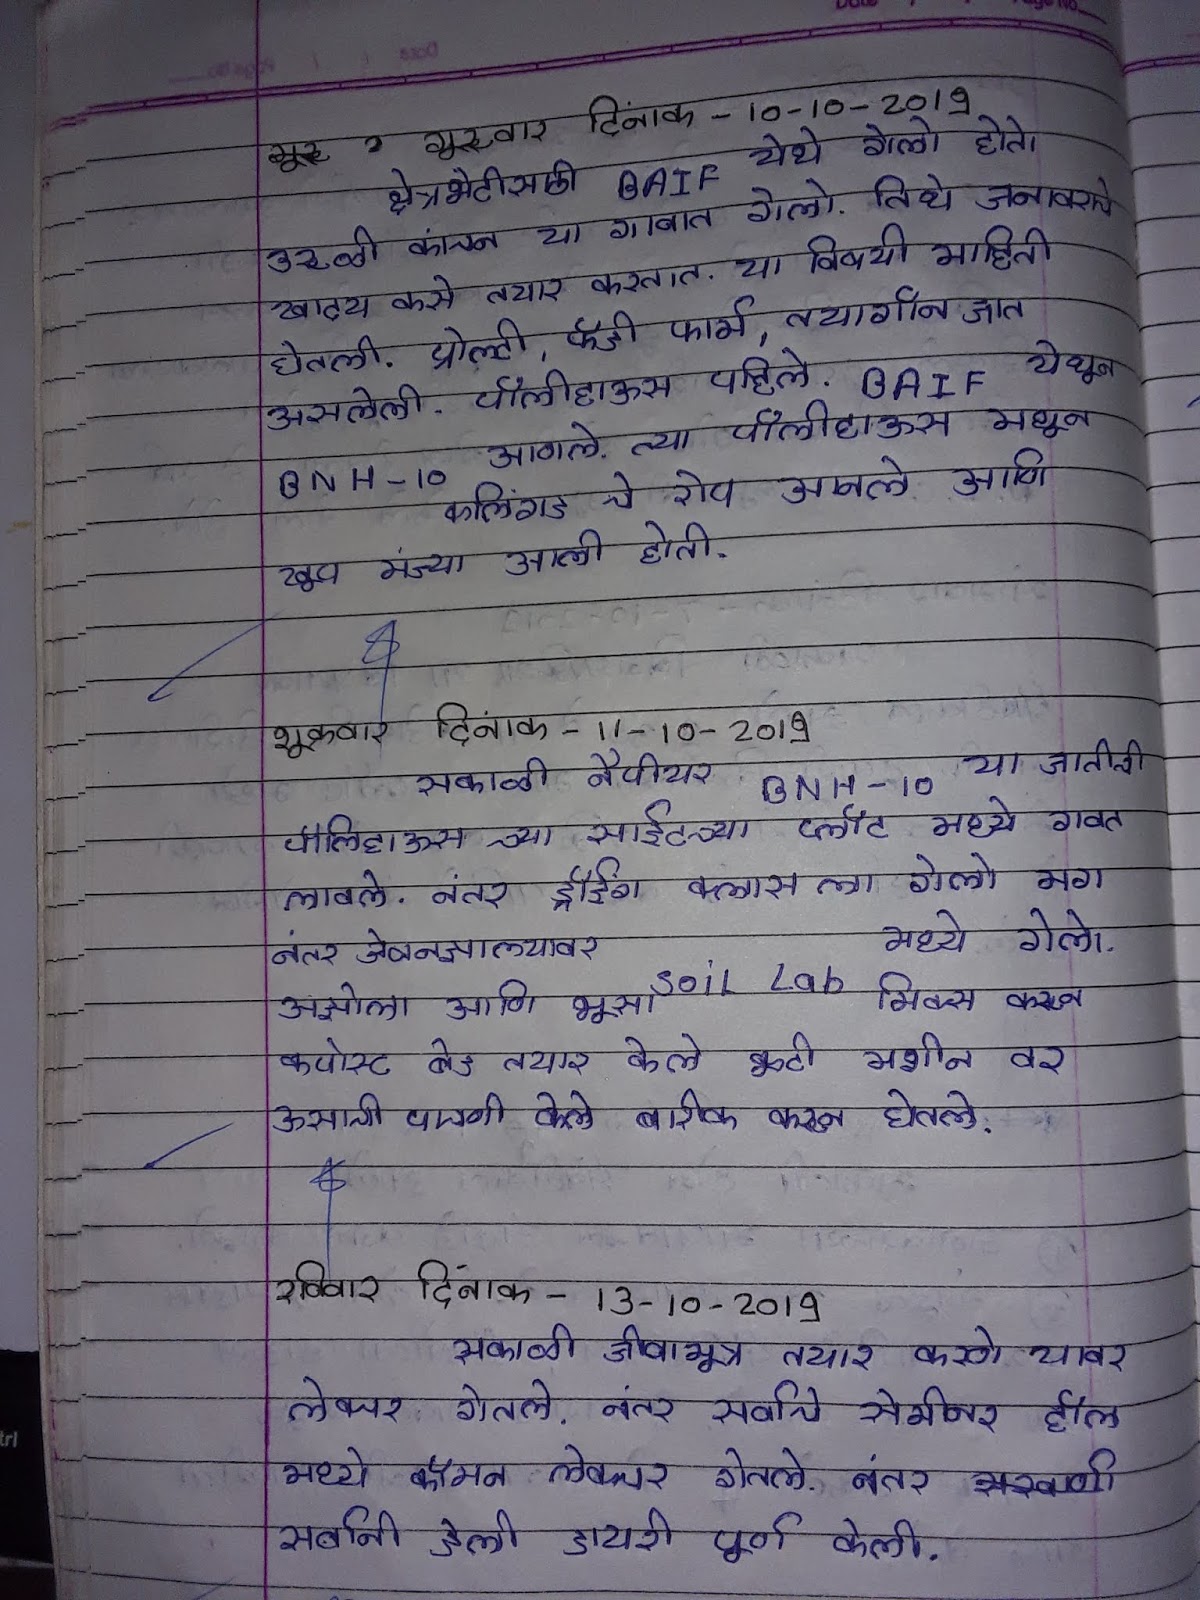 गुरुवार दिनांक - 10-10-2019
क्षेत्रभेटीसाठी BAIF येथे गेलो होतो
उरुळी कांचन या गावात गेलो. तिथे जनावराचे
खादय कसे तयार करतात. या विषयी माहिती
घेतली. प्रोल्टी, फार्म, जात
असलेली. पॉलीहाऊस पहिले. BAIF येथून
BNH-10 आणले. त्या पॉलीहाऊस मधून
कलिंगड चे रोप आनले आणि
खुप मंज्या आली होती.
शुक्रवार दिनांक - 11-10-2019
सकाळी नैपीयर BNH-10 या जातीची
पॉलिहाऊस च्या साईटच्या प्लॉट मध्ये गवत
लावले. नंतर ड्रॉईंग क्लास ला गेलो मग
नंतर जेवनझाल्यावर मध्ये गेलो.
अझोला आणि भूसा soil Lab मिक्स करून
कपोस्ट बेड तयार केले कुटी मशीन वर
ऊसाची पाचगी केले बारीक करून घेतले.
रविवार दिनांक - 13-10-2019
सकाळी जीवामृत्र तयार करणे यावर
लेक्चर घेतले. नंतर सर्वाचे सेमीनर हॉल
मध्ये कॉमन लेक्चर घेतले. नंतर
सर्वानी डेली डायरी पूर्ण केली.